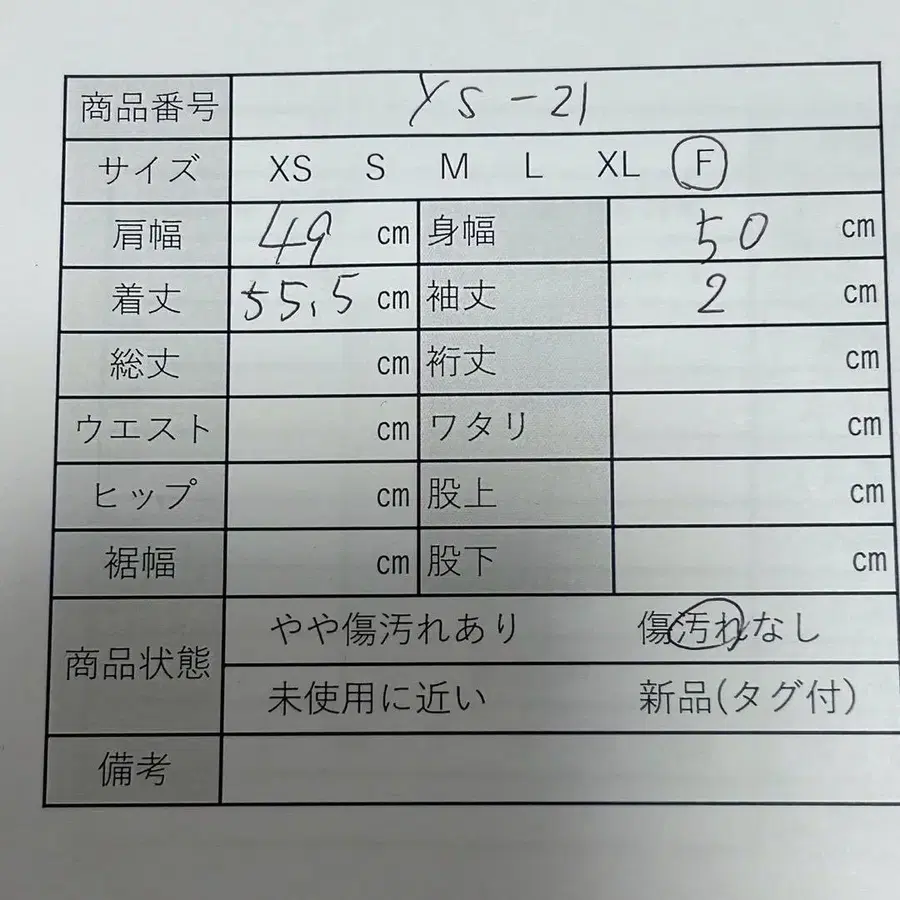 商品番号 YS-21
サイズ XS S M L XL F
肩幅 49 cm 身幅 50 cm
着丈 55.5 cm 袖丈 2 cm
総丈 cm 裄丈 cm
ウエスト cm ワタリ cm
ヒップ cm 股上 cm
裾幅 cm 股下 cm
商品状態 やや傷汚れあり 傷汚れなし
未使用に近い 新品(タグ付)
備考